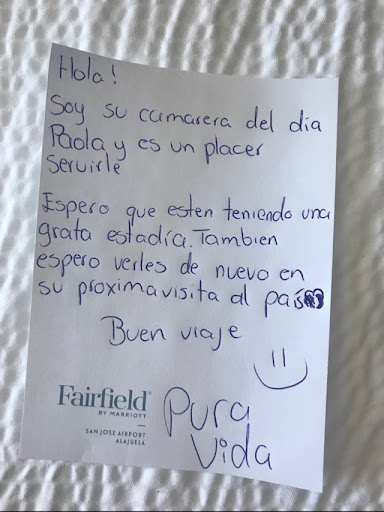 Hola!
Soy su camarera del día
Paola y es un placer
servirle
Espero que esten teniendo una
grata estadía. Tambien
espero verles de nuevo en
su proxima visita al país
Buen viaje
Fairfield
BY MARRIOTT
SAN JOSE AIRPORT
ALAJUELA
Pura
Vida